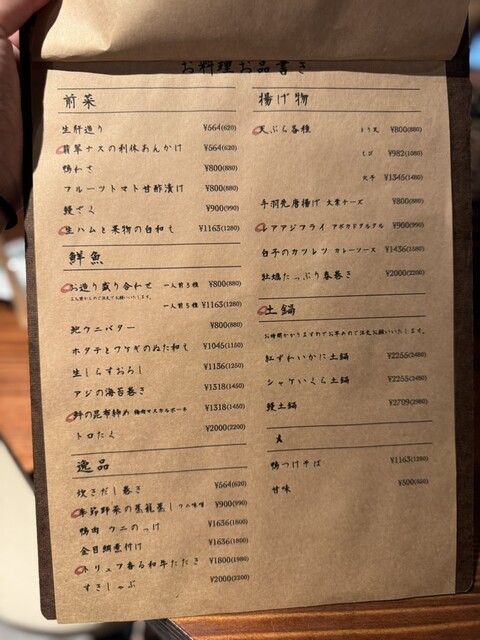 お料理お品書き
前菜
生肝造り ¥564(620)
翡翠ナスの利休あんかけ ¥564(620)
鴨わさ ¥800(880)
フルーツトマト甘酢漬け ¥800(880)
鰻ざく ¥900(990)
生ハムと果物の白和え ¥1163(1280)
鮮魚
お造り盛り合わせ 一人前3種 ¥800(880)
一人前5種 ¥1163(1280)
地ウニバター ¥800(880)
ホタテとワケギのぬた和え ¥1045(1150)
生しらすおろし ¥1136(1250)
アジの海苔巻き ¥1318(1450)
の昆布締め 梅肉マスカルポーネ ¥1318(1450)
トロたく ¥2000(2200)
逸品
炊きだし巻き ¥564(620)
季節野菜の蒸籠蒸し ウニ味噌 ¥900(990)
鴨肉 ウニのっけ ¥1636(1800)
金目鯛煮付け ¥1636(1800)
トリュフ香る和牛たたき ¥1800(1980)
すきしゃぶ ¥2000(2200)
揚げ物
天ぷら各種 ¥800(880)
¥982(1080)
穴子 ¥1345(1480)
手羽先唐揚げ 大葉チーズ ¥800(880)
レアアジフライ アボカドタルタル ¥900(990)
白子のカツレツ カレーソース ¥1436(1580)
牡蠣たっぷり春巻き ¥2000(2200)
土鍋
お時間かかりますのでお早めのご注文お願いいたします。
紅ずわいかに土鍋 ¥2255(2480)
シャケいくら土鍋 ¥2255(2480)
鰻土鍋 ¥2709(2980)
〆
鴨つけそば ¥1163(1280)
甘味 ¥500(550)